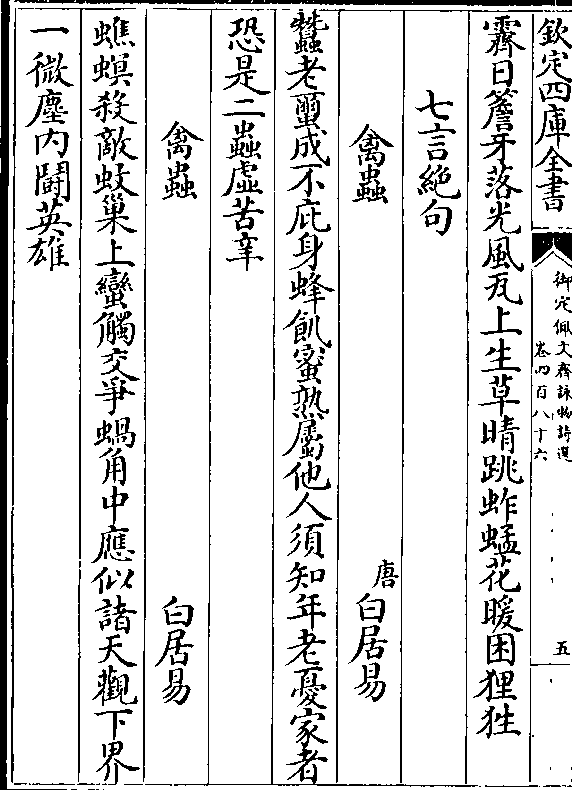 欽定四庫全書
御定佩文齋詠物詩選
卷四百八十六
五
霽日簷牙落光風瓦上生草晴跳蚱蜢花暖困狸狌
七言絶句
禽蟲
唐白居易
蠶老蠒成不庇身蜂飢蜜熟屬他人須知年老憂家者
恐是二蟲虛苦辛
禽蟲
白居易
蟭螟殺敵蚊巢上蠻觸交爭蝸角中應似諸天觀下界
一微塵内鬭英雄